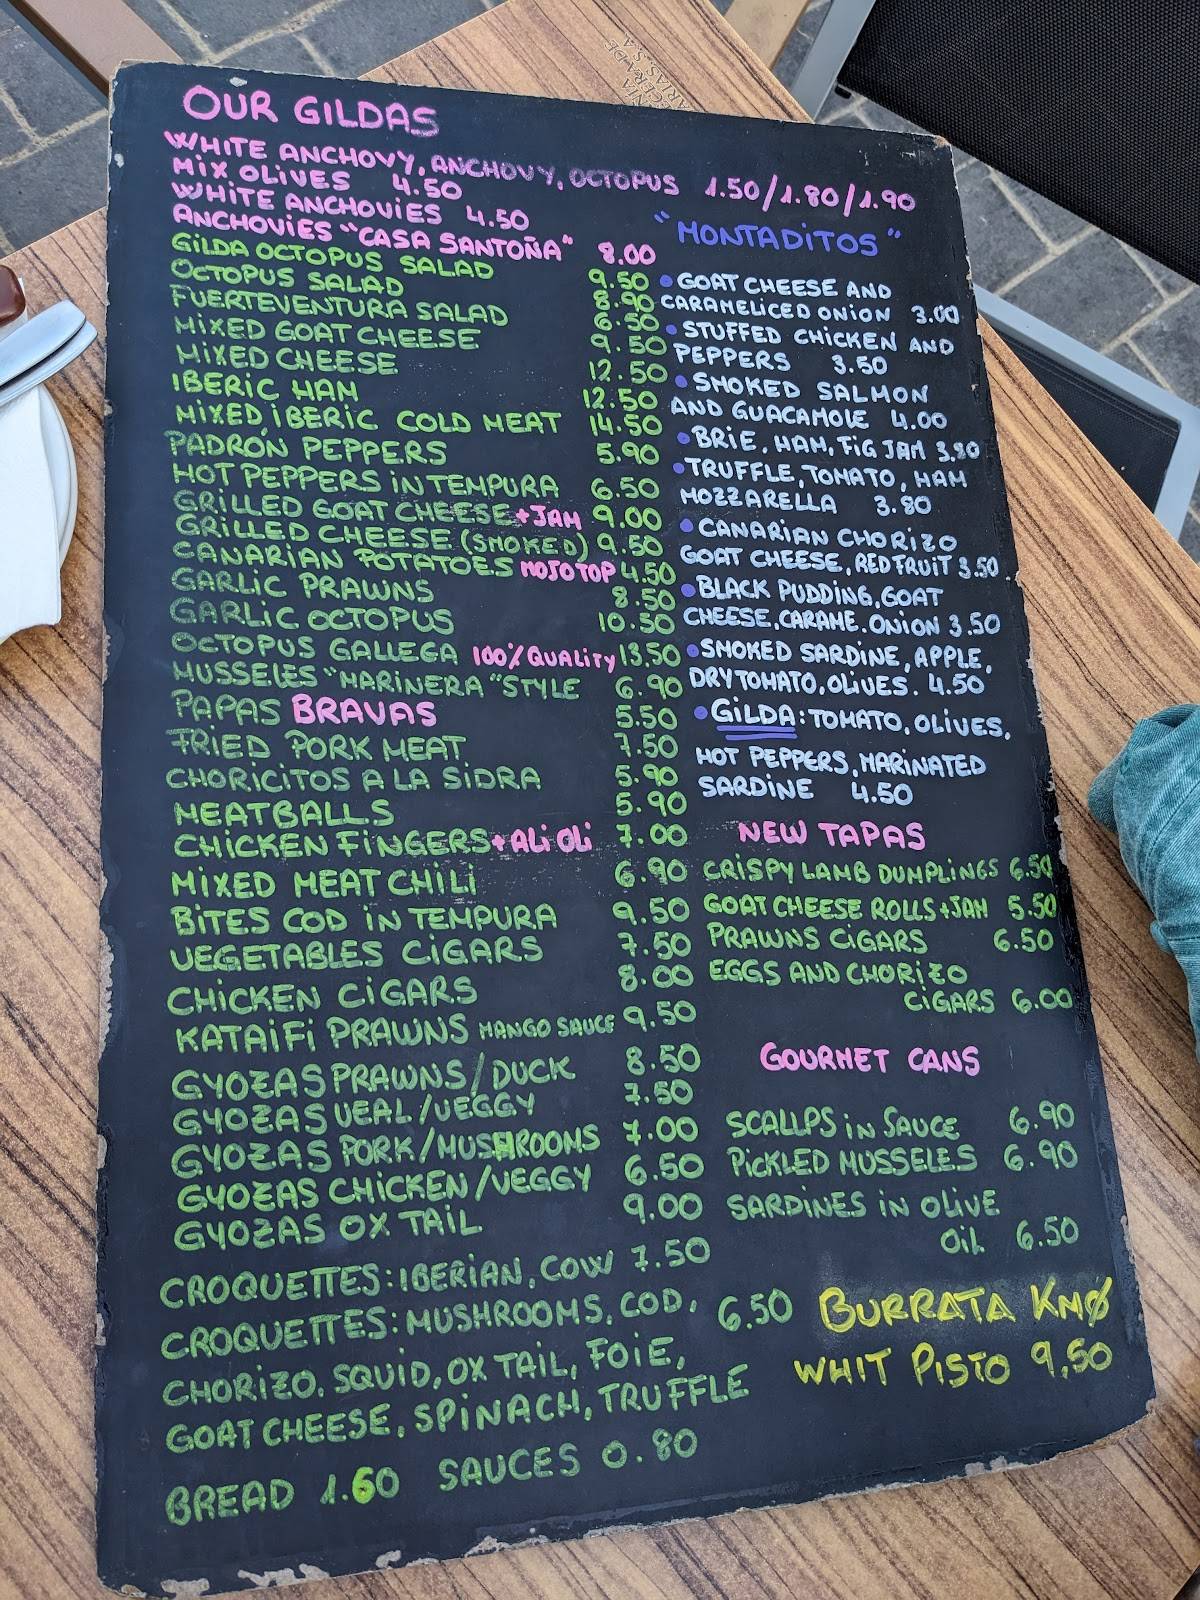 OUR GILDAS
WHITE ANCHOVY, ANCHOVY, OCTOPUS 1.50/1.80/1.90
MIX OLIVES 4.50
WHITE ANCHOVIES 4.50
ANCHOVIES "CASA SANTOÑA" 8.00
GILDA OCTOPUS SALAD 9.50
OCTOPUS SALAD 8.90
FUERTEVENTURA SALAD 6.50
MIXED GOAT CHEESE 9.50
MIXED CHEESE 12.50
IBERIC HAM 12.50
MIXED IBERIC COLD MEAT 14.50
PADRÓN PEPPERS 5.90
HOT PEPPERS IN TEMPURA 6.50
GRILLED GOAT CHEESE +JAM 9.00
GRILLED CHEESE (SMOKED) 9.50
CANARIAN POTATOES MOJO TOP 4.50
GARLIC PRAWNS 8.50
GARLIC OCTOPUS 10.50
OCTOPUS GALLEGA 100% QUALITY 13.50
MUSSELES "MARINERA" STYLE 6.90
PAPAS BRAVAS 5.50
FRIED PORK MEAT 7.50
CHORICITOS A LA SIDRA 5.90
MEATBALLS 5.90
CHICKEN FINGERS + ALI OLI 7.00
MIXED MEAT CHILI 6.90
BITES COD IN TEMPURA 9.50
VEGETABLES CIGARS 7.50
CHICKEN CIGARS 8.00
KATAIFI PRAWNS MANGO SAUCE 9.50
GYOZAS PRAWNS/DUCK 8.50
GYOZAS VEAL/VEGGY 7.50
GYOZAS PORK/MUSHROOMS 7.00
GYOZAS CHICKEN/VEGGY 6.50
GYOZAS OX TAIL 9.00
CROQUETTES: IBERIAN, COW 7.50
CROQUETTES: MUSHROOMS, COD, 6.50
CHORIZO, SQUID, OX TAIL, FOIE,
GOAT CHEESE, SPINACH, TRUFFLE
BREAD 1.60 SAUCES 0.80
"MONTADITOS"
• GOAT CHEESE AND
CARAMELICED ONION 3.00
• STUFFED CHICKEN AND
PEPPERS 3.50
• SMOKED SALMON
AND GUACAMOLE 4.00
• BRIE, HAM, FIG JAM 3.80
• TRUFFLE, TOMATO, HAM
MOZZARELLA 3.80
• CANARIAN CHORIZO
GOAT CHEESE, RED FRUIT 3.50
• BLACK PUDDING, GOAT
CHEESE, CARAME. ONION 3.50
• SMOKED SARDINE, APPLE,
DRY TOMATO, OLIVES. 4.50
• GILDA: TOMATO, OLIVES,
HOT PEPPERS, MARINATED
SARDINE 4.50
NEW TAPAS
CRISPY LAMB DUMPLINGS 6.50
GOAT CHEESE ROLLS +JAM 5.50
PRAWNS CIGARS 6.50
EGGS AND CHORIZO
CIGARS 6.00
GOURMET CANS
SCALLPS IN SAUCE 6.90
PICKLED MUSSELES 6.90
SARDINES IN OLIVE
OIL 6.50
BURRATA KMØ
WHIT PISTO 9,50